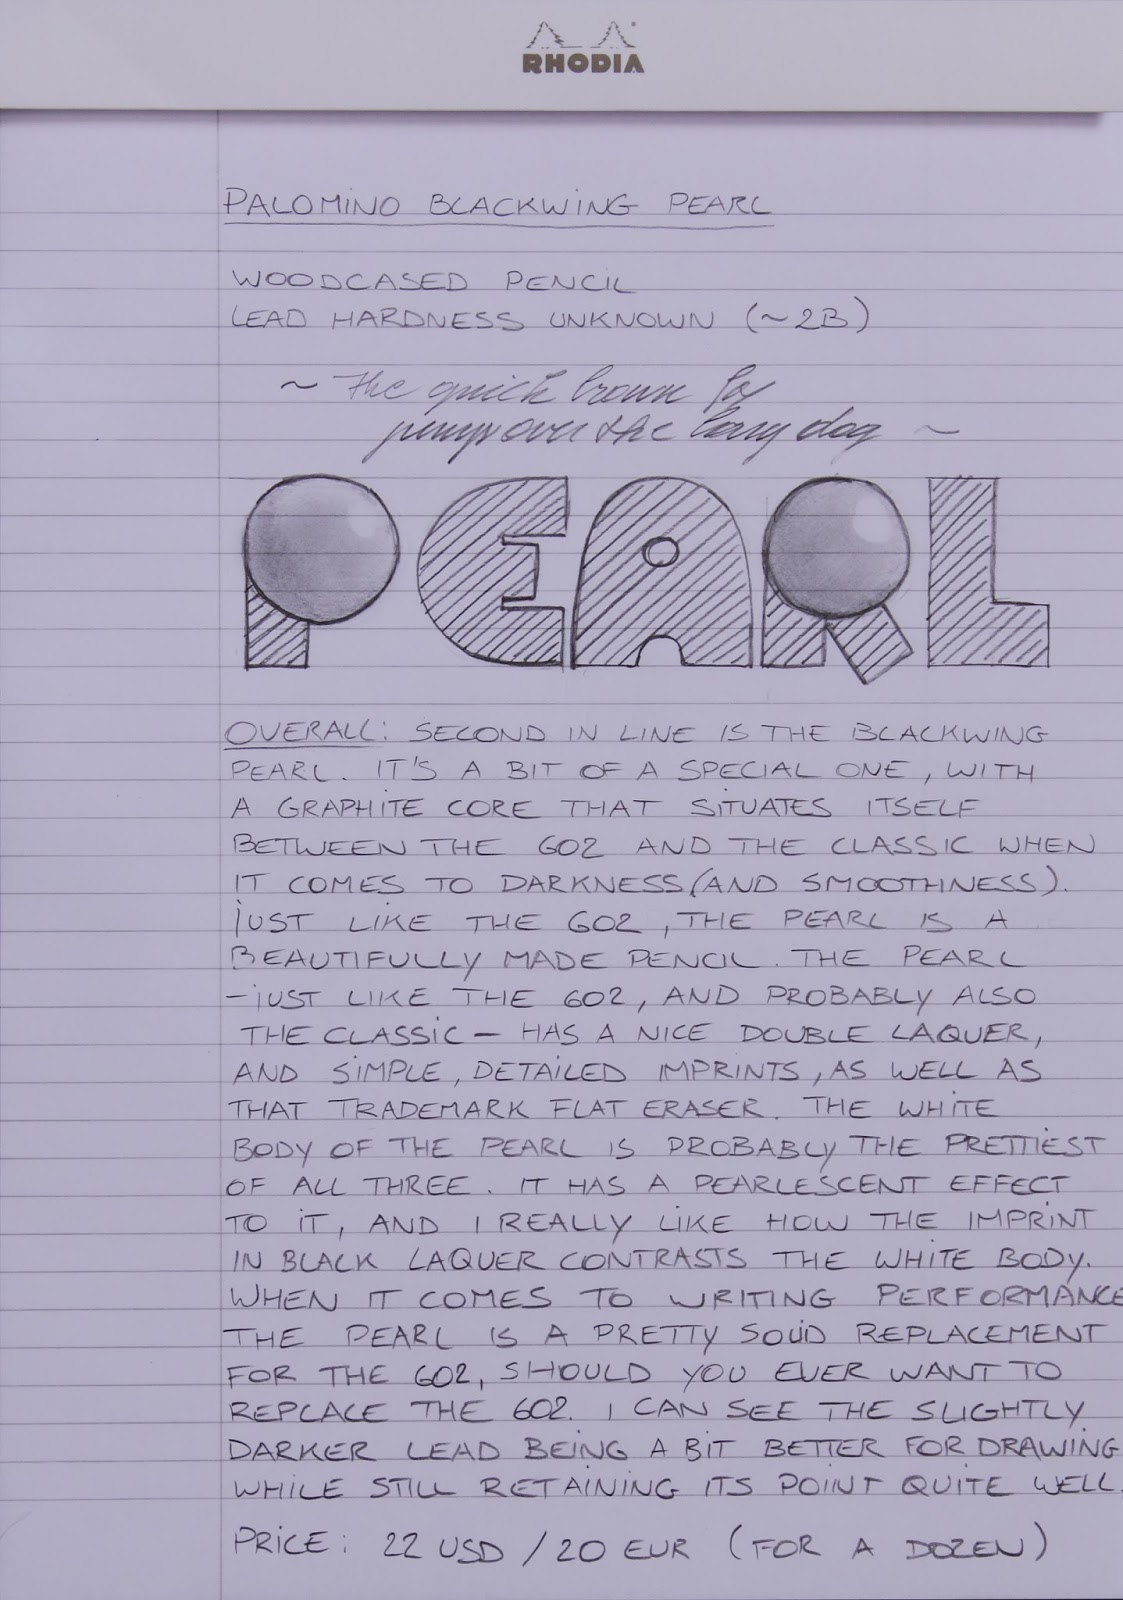 RHODIA
PALOMINO BLACKWING PEARL
WOODCASED PENCIL
LEAD HARDNESS UNKNOWN (~2B)
~ The quick brown fox
jumps over the lazy dog ~
PEARL
OVERALL: SECOND IN LINE IS THE BLACKWING
PEARL. IT'S A BIT OF A SPECIAL ONE, WITH
A GRAPHITE CORE THAT SITUATES ITSELF
BETWEEN THE 602 AND THE CLASSIC WHEN
IT COMES TO DARKNESS (AND SMOOTHNESS).
JUST LIKE THE 602, THE PEARL IS A
BEAUTIFULLY MADE PENCIL. THE PEARL
- JUST LIKE THE 602, AND PROBABLY ALSO
THE CLASSIC - HAS A NICE DOUBLE LAQUER,
AND SIMPLE, DETAILED IMPRINTS, AS WELL AS
THAT TRADEMARK FLAT ERASER. THE WHITE
BODY OF THE PEARL IS PROBABLY THE PRETTIEST
OF ALL THREE. IT HAS A PEARLESCENT EFFECT
TO IT, AND I REALLY LIKE HOW THE IMPRINT
IN BLACK LAQUER CONTRASTS THE WHITE BODY.
WHEN IT COMES TO WRITING PERFORMANCE
THE PEARL IS A PRETTY SOLID REPLACEMENT
FOR THE 602, SHOULD YOU EVER WANT TO
REPLACE THE 602. I CAN SEE THE SLIGHTLY
DARKER LEAD BEING A BIT BETTER FOR DRAWING
WHILE STILL RETAINING ITS POINT QUITE WELL.
PRICE: 22 USD / 20 EUR (FOR A DOZEN)